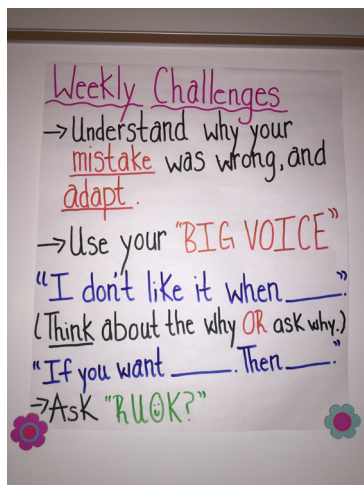 Weekly Challenges
→Understand why your
mistake was wrong, and
adapt.
→Use your "BIG VOICE"
"I don't like it when ____."
(Think about the why OR ask why.)
"If you want ____. Then ____."
→Ask "RUOK?"